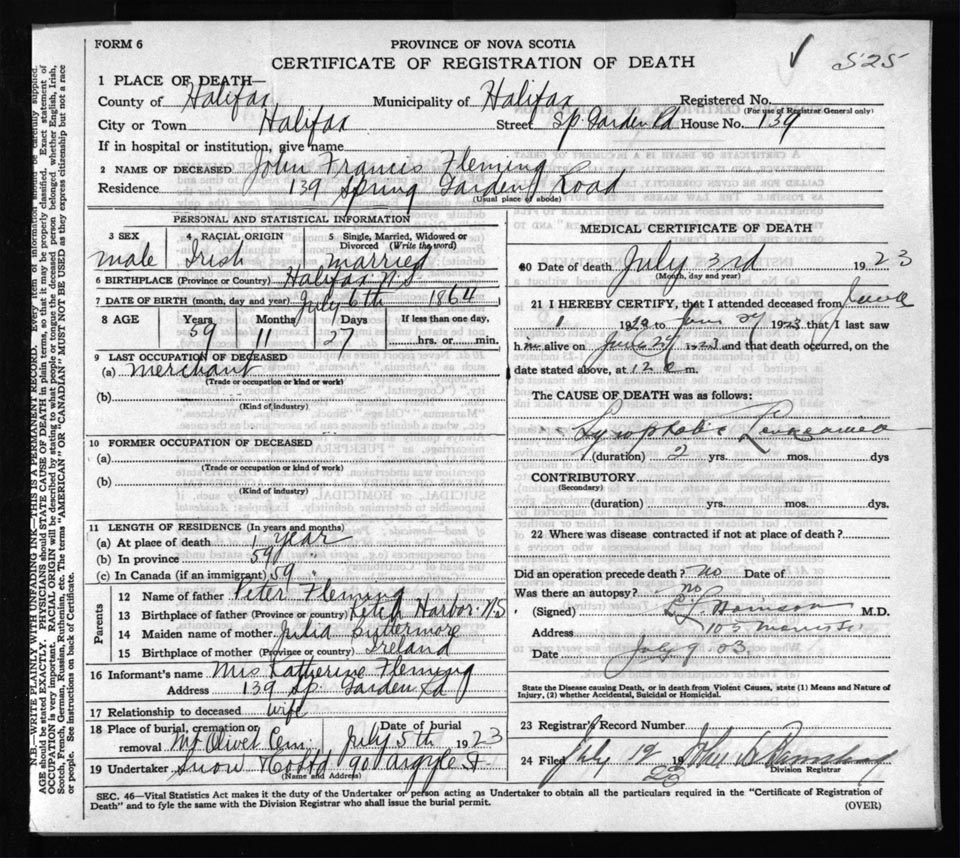 FORM 6
PROVINCE OF NOVA SCOTIA
CERTIFICATE OF REGISTRATION OF DEATH
525
1 PLACE OF DEATH—
County of Halifax Municipality of Halifax Registered No.
(For use of Registrar General only)
City or Town Halifax Street Sp. Garden Rd House No. 139
If in hospital or institution, give name
2 NAME OF DECEASED John Francis Fleming
Residence 139 Spring Garden Road
(Usual place of abode)
PERSONAL AND STATISTICAL INFORMATION
3 SEX 4 RACIAL ORIGIN 5 Single, Married, Widowed or Divorced (Write the word)
male Irish married
6 BIRTHPLACE (Province or Country) Halifax N.S
7 DATE OF BIRTH (month, day and year) July 6th 1864
8 AGE Years Months Days If less than one day,
59 11 27 hrs. or min.
9 LAST OCCUPATION OF DECEASED
(a) merchant
(Trade or occupation or kind or work)
(b)
(Kind of industry)
10 FORMER OCCUPATION OF DECEASED
(a)
(Trade or occupation or kind of work)
(b)
(Kind of industry)
11 LENGTH OF RESIDENCE (In years and months)
(a) At place of death 1 year
(b) In province 59 "
(c) In Canada (if an immigrant) 59 "
Parents
12 Name of father Peter Fleming
13 Birthplace of father (Province or country) Ketch Harbor N.S
14 Maiden name of mother Julia
15 Birthplace of mother (Province or country) Ireland
16 Informant's name Mrs Katherine Fleming
Address 139 Sp. Garden Rd
17 Relationship to deceased wife
18 Place of burial, cremation or removal Mt Olivet Cem. Date of burial July 5th 1923
19 Undertaker Snow 90 Argyle St
(Name and Address)
MEDICAL CERTIFICATE OF DEATH
20 Date of death July 3rd 1923
(Month, day and year)
21 I HEREBY CERTIFY, that I attended deceased from June
1 19 to 1923 that I last saw
him alive on June 29 1923 and that death occurred, on the
date stated above, at 12 m.
The CAUSE OF DEATH was as follows:
(duration) 2 yrs. mos. dys
CONTRIBUTORY
(Secondary)
(duration) yrs. mos. dys.
22 Where was disease contracted if not at place of death?
Did an operation precede death? no Date of
Was there an autopsy? no
(Signed) M.D.
Address 105 Morris St.
Date July 9 03.
State the Disease causing Death, or in death from Violent Causes, state (1) Means and Nature of
Injury, (2) whether Accidental, Suicidal or Homicidal.
23 Registrar's Record Number
24 Filed July 19 19 23
Division Registrar
SEC. 46—Vital Statistics Act makes it the duty of the Undertaker or person acting as Undertaker to obtain all the particulars required in the "Certificate of Registration of
Death" and to fyle the same with the Division Registrar who shall issue the burial permit.
(OVER)
N.B.—WRITE PLAINLY WITH UNFADING INK—THIS IS A PERMANENT RECORD. Every item of information should be carefully supplied.
AGE should be stated EXACTLY. PHYSICIANS should STATE CAUSE OF DEATH in plain terms, so that it may be properly classified. Exact statement of
OCCUPATION is very important. RACIAL ORIGIN will be described by stating to what people or tongue the deceased person belonged whether English, Irish,
Scotch, French, German, Russian, Ruthenian, etc. The terms "AMERICAN" OR "CANADIAN" MUST NOT BE USED as they express citizenship but not a race
or people. See instructions on back of Certificate.